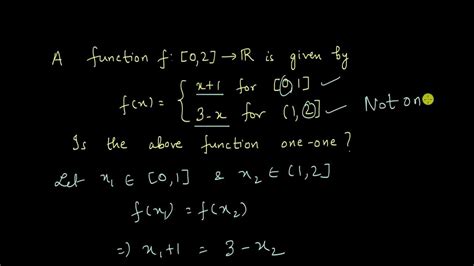 A function f: [0,2] → ℝ is given by
f(x) = { x+1 for [0,1] ✓
3-x for (1,2] ✓ Not on
Is the above function one-one?
Let x₁ ∈ [0,1] & x₂ ∈ (1,2]
f(x₁) = f(x₂)
⇒) x₁+1 = 3-x₂